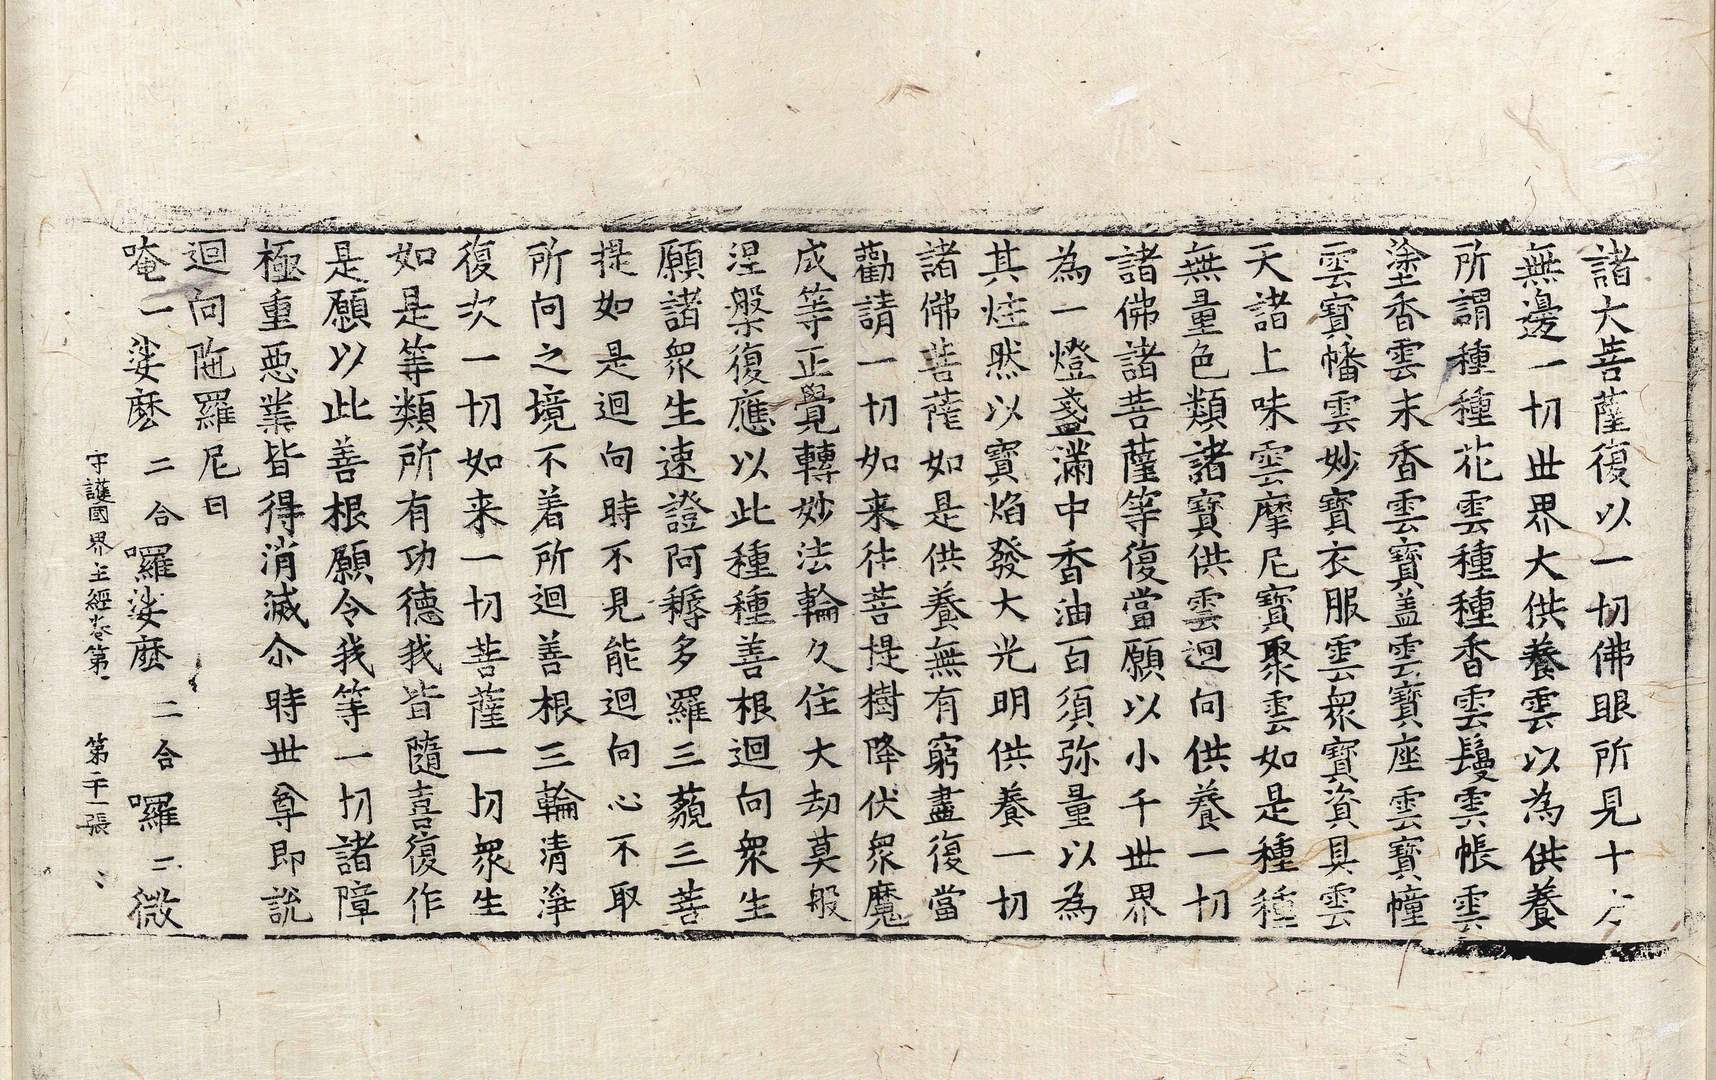 諸大菩薩復以一切佛眼所見十方
無邊一切世界大供養雲以為供養
所謂種種花雲種種香雲鬘雲帳雲
塗香雲末香雲寶盖雲寶座雲寶幢
雲寶幡雲妙寶衣服雲衆寶資具雲
天諸上味雲摩尼寶聚雲如是種種
無量色類諸寶供雲迴向供養一切
諸佛諸菩薩等復當願以小千世界
為一燈盞滿中香油百須弥量以為
其炷然以寶焰發大光明供養一切
諸佛菩薩如是供養無有窮盡復當
勸請一切如来往菩提樹降伏衆魔
成等正覺轉妙法輪久住大劫莫般
涅槃復應以此種種善根迴向衆生
願諸衆生速證阿耨多羅三藐三菩
提如是迴向時不見能迴向心不取
所向之境不着所迴善根三輪清淨
復次一切如来一切菩薩一切衆生
如是等類所有功德我皆隨喜復作
是願以此善根願令我等一切諸障
極重惡業皆得消滅尒時世尊即說
迴向陁羅尼曰
唵一娑麽二合囉娑麽二合囉二微
守護國界主經卷第 第二十一張